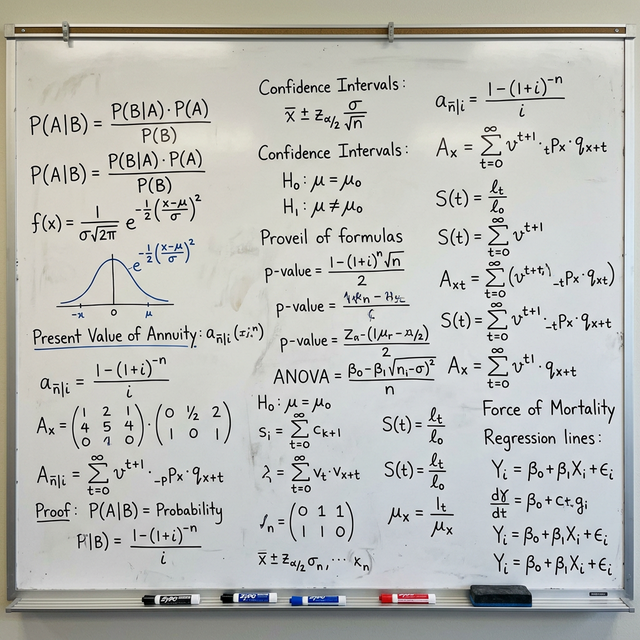 P(A|B) = P(B|A)·P(A) / P(B)
P(A|B) = P(B|A)·P(A) / P(B)
f(x) = 1 / σ√2π e^-½(x-μ/σ)²
e^-½(x-μ/σ)²
-x 0 μ
Present Value of Annuity: a_n̅|i
a_n̅|i = 1-(1+i)^-n / i
A_x = (1 2 1
4 5 4
0 1 0) · (0 ½ 2
1 0 1)
A_n̅|i = ∞∑t=0 v^t+1 · _-pPx · q_x+t
Proof: P(A|B) = Probability
P(B) = 1-(1+i)^-n / i
Confidence Intervals:
x̅ ± z_α/2 σ/√n
Confidence Intervals:
H₀: μ = μ₀
H₁: μ ≠ μ₀
Proveil of formulas
p-value = 1-(1+i)^n √n / 2
p-value =
p-value = Z_α-(1μr-α/2) / 2
ANOVA = β₀-β₁√(n_i-σ)² / n
H₀: μ = μ₀
s_i = ∞∑t=0 c_k+1
λ = ∞∑t=0 v_t · v_x+t
_n = (0 1 1
1 1 0)
x̅ ± z_α/2 σ_n, ··· x_n
S(t) = l_t / l_0
S(t) = l_t / l_0
μ_x = l_t / μ_x
a_n̅|i = 1-(1+i)^-n / i
A_x = ∞∑t=0 v^t+1 · _tPx · q_x+t
S(t) = l_t / l_0
S(t) = ∞∑t=0 v^t+1
A_xt = ∞∑t=0 (v^t+t₁ _-tPx · q_xt)
S(t) = ∞∑t=0 v^t+1 · _-tPx · q_x+t
A_x = ∞∑t=0 v^t1 · q_x+t
Force of Mortality
Regression lines:
Y_i = β₀+β₁X_i+ϵ_i
dγ/dt = β₀+c+·g_i
Y_i = β₀+β₁X_i+ϵ_i
Y_i = β₀+β₁X_i+ϵ_i